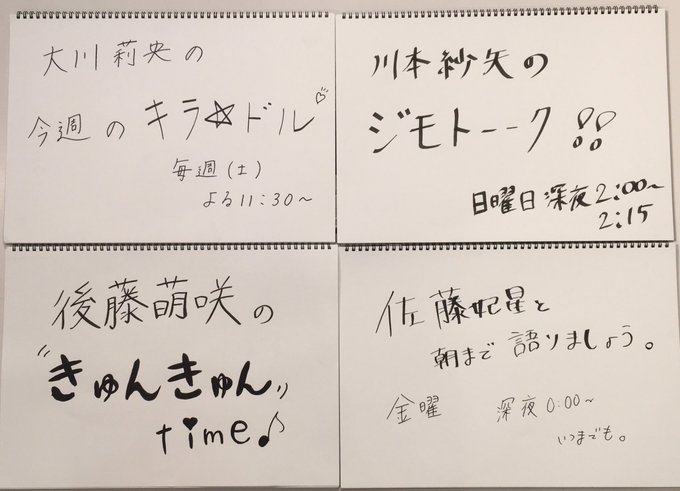 大川莉央の
今週のキラ☆ドル♡
毎週(土)
よる11:30~
川本紗矢の
ジモトーーク!!
日曜日深夜2:00~
2:15
後藤萌咲の
"きゅんきゅん"
time♪
佐藤妃星と
朝まで語りましょう。
金曜 深夜0:00~
いつまでも。